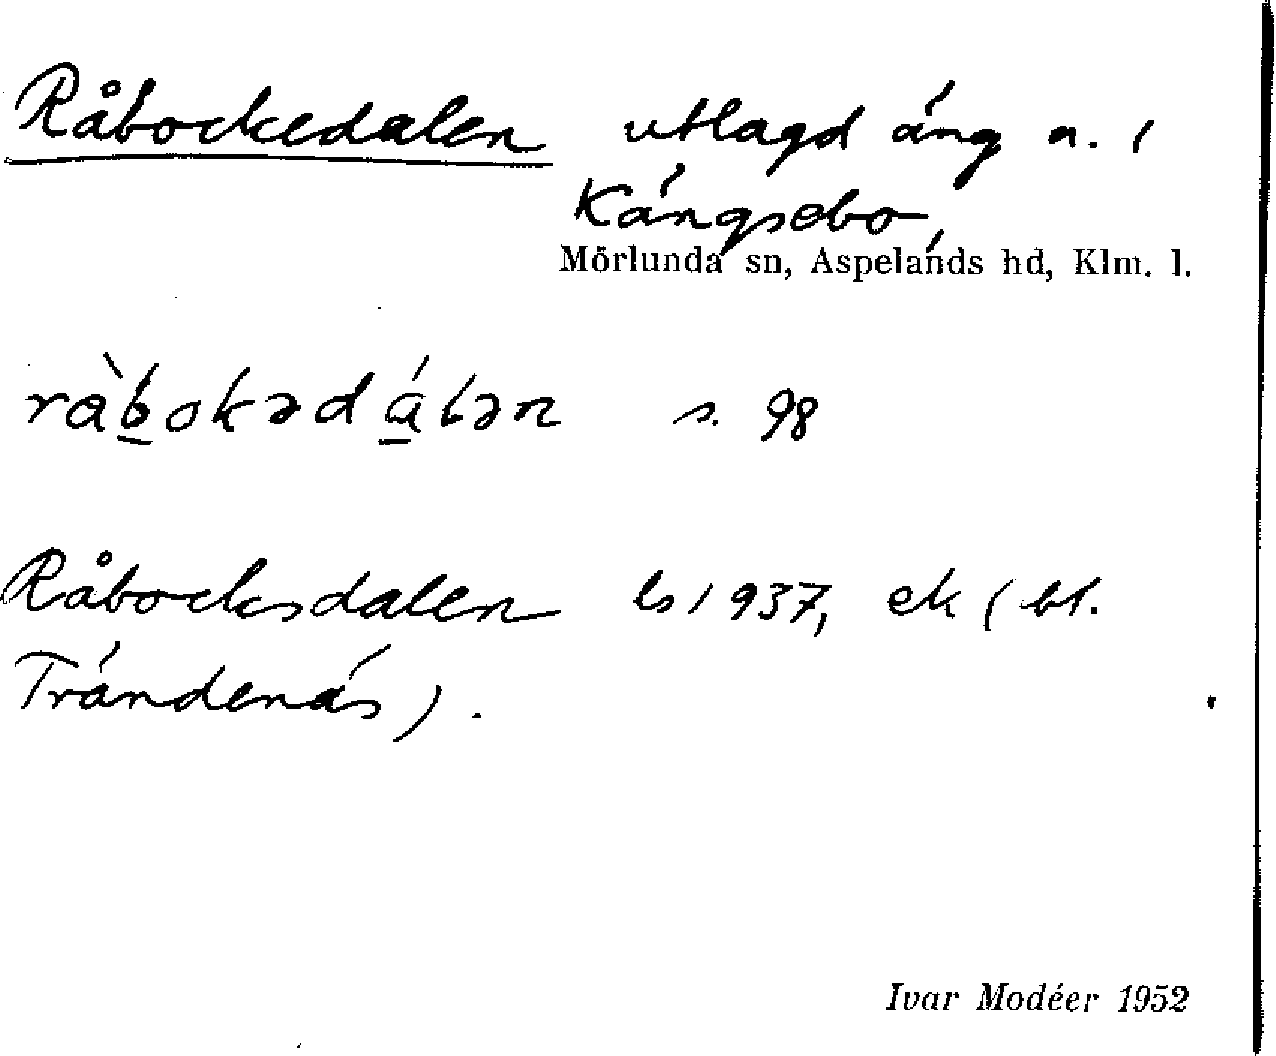 Råbockedalen utlagd äng n. i
Kängsebo,
Mörlunda sn, Aspelands hd, Klm. l.
s. 98
Råbocksdalen ls 1937, ek (bl.
Trändenäs).
Ivar Modéer 1952